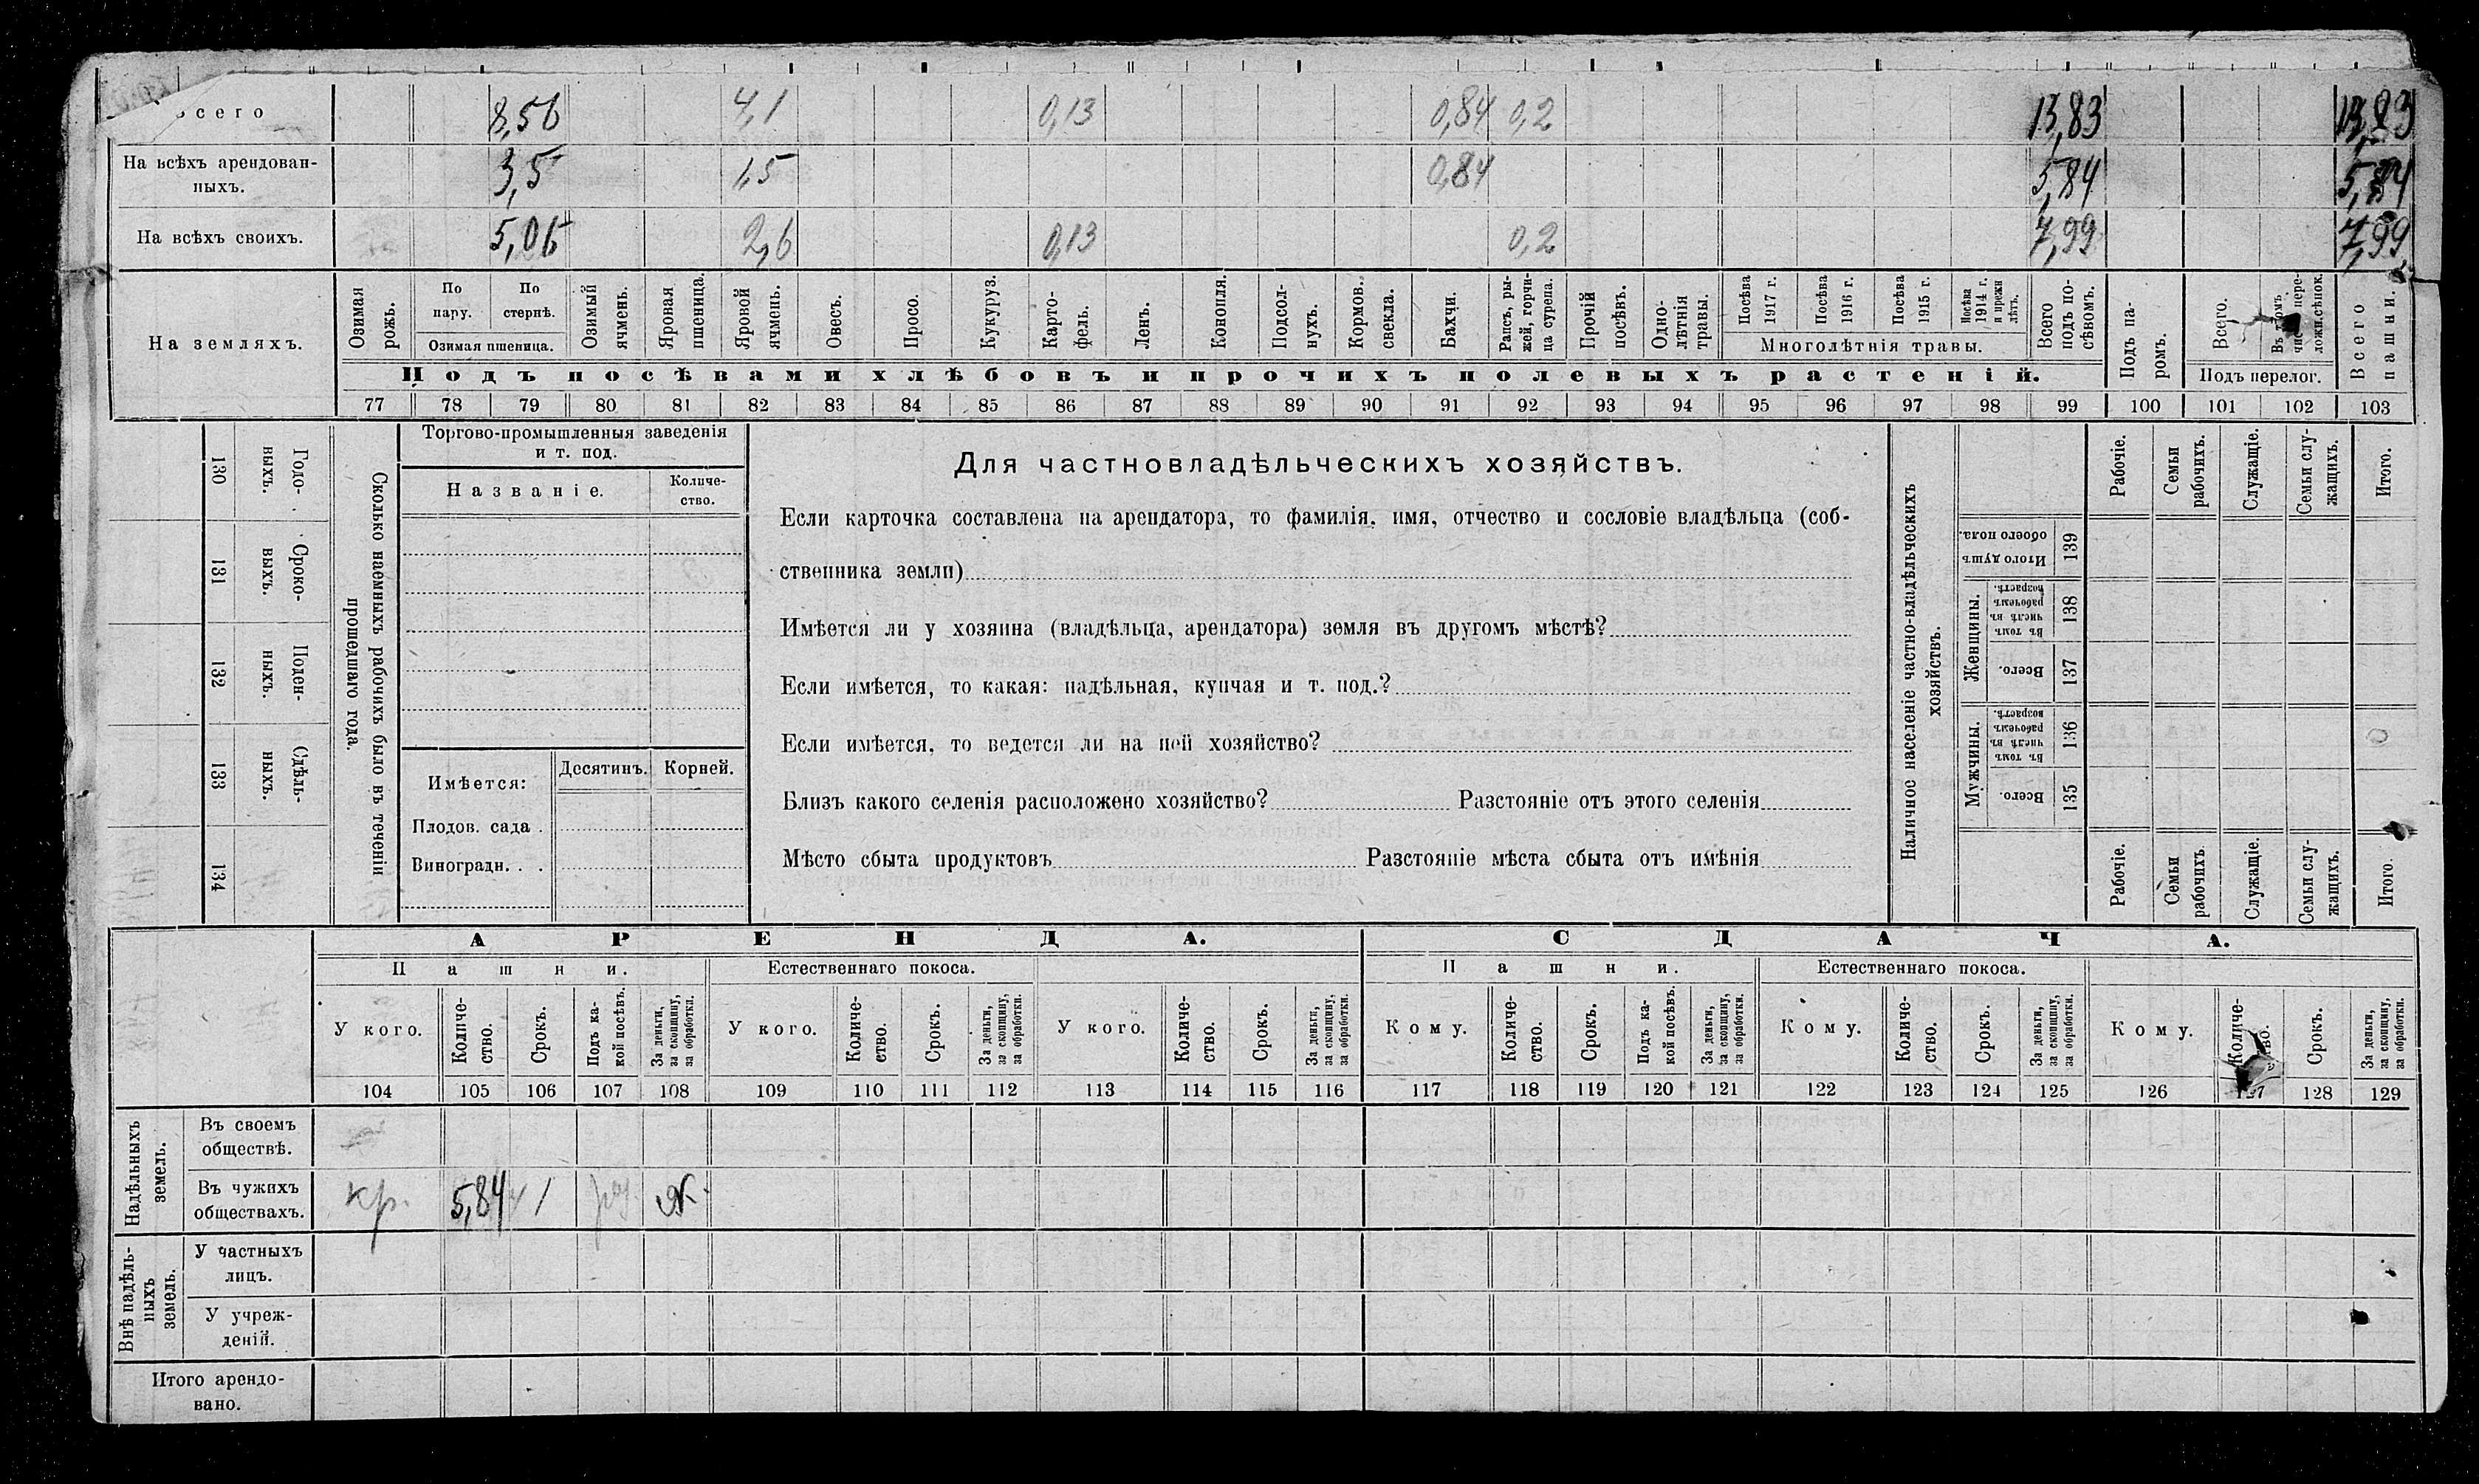 Всего 8,56 4,1 0,13 0,84 0,2 13,83 13,83
На всѣхъ арендован-
ныхъ. 3,5 1,5 0,84 5,84 5,84
На всѣхъ своихъ. 5,06 2,6 0,13 0,2 7,99 7,99
На земляхъ.
Озимая рожь.
По пару.
По стернѣ.
Озимая пшеница.
Озимый ячмень.
Яровая пшеница.
Яровой ячмень.
Овесъ.
Просо.
Кукуруз.
Карто-
фель.
Ленъ.
Конопля.
Подсол-
нухъ.
Кормов.
свекла.
Бахчи.
Рапсъ, ры-
жей, горчи-
ца сурепа.
Прочій посѣвъ.
Одно-
лѣтнія травы.
Посѣва 1917 г.
Посѣва 1916 г.
Посѣва 1915 г.
Посѣва 1914 г. и прежн лѣтъ.
Многолѣтнія травы.
Всего подъ по-
сѣвомъ.
Подъ па-
ромъ.
Всего.
Подъ перелог.
Всего пашни.
Подъ посѣвами хлѣбовъ и прочихъ полевыхъ растеній.
77 78 79 80 81 82 83 84 85 86 87 88 89 90 91 92 93 94 95 96 97 98 99 100 101 102 103
130 Годо-
выхъ.
131 Сроко-
выхъ.
132 Поден-
ныхъ.
133 Сдѣль-
ныхъ.
134
Сколько наемныхъ рабочихъ было въ теченіи
прошедшаго года.
Торгово-промышленныя заведенія
и т. под.
Названіе.
Количе-
ство.
Имѣется:
Десятинъ. Корней.
Плодов. сада .
Виноградн. . .
Для частновладѣльческихъ хозяйствъ.
Если карточка составлена на арендатора, то фамилія, имя, отчество и сословіе владѣльца (соб-
ственника земли)
Имѣется ли у хозяина (владѣльца, арендатора) земля въ другомъ мѣстѣ?
Если имѣется, то какая: надѣльная, купчая и т. под.?
Если имѣется, то ведется ли на ней хозяйство?
Близъ какого селенія расположено хозяйство? Разстояніе отъ этого селенія
Мѣсто сбыта продуктовъ Разстояніе мѣста сбыта отъ имѣнія
Наличное населеніе частно-владѣльческихъ
хозяйствъ.
Рабочіе.
Семьи рабочихъ.
Служащіе.
Семьи слу-
жащихъ.
Итого.
Итого душъ обоего пола. 139
Женщины.
Въ томъ числѣ въ рабочемъ возрастѣ. 138
Всего. 137
Мужчины.
Въ томъ числѣ въ рабочемъ возрастѣ. 136
Всего. 135
Рабочіе.
Семьи рабочихъ.
Служащіе.
Семьи слу-
жащихъ.
Итого.
АРЕНДА. СДАЧА.
Пашни. Естественнаго покоса. Пашни. Естественнаго покоса.
У кого.
Количе-
ство.
Срокъ.
Подъ ка-
кой посѣвъ.
За деньги, за скопщину, за обработки.
У кого.
Количе-
ство.
Срокъ.
За деньги, за скопщину, за обработки.
У кого.
Количе-
ство.
Срокъ.
За деньги, за скопщину, за обработки.
Кому.
Количе-
ство.
Срокъ.
Подъ ка-
кой посѣвъ.
За деньги, за скопщину, за обработки.
Кому.
Количе-
ство.
Срокъ.
За деньги, за скопщину, за обработки.
Кому.
Количе-
Срокъ.
За деньги, за скопщину, за обработки.
104 105 106 107 108 109 110 111 112 113 114 115 116 117 118 119 120 121 122 123 124 125 126 127 128 129
Надѣльныхъ
земель.
Въ своемъ
обществѣ.
Въ чужихъ
обществахъ. кр. 5,84 1
Внѣ надѣль-
ныхъ
земель.
У частныхъ
лицъ.
У учреж-
деній.
Итого арендо-
вано.